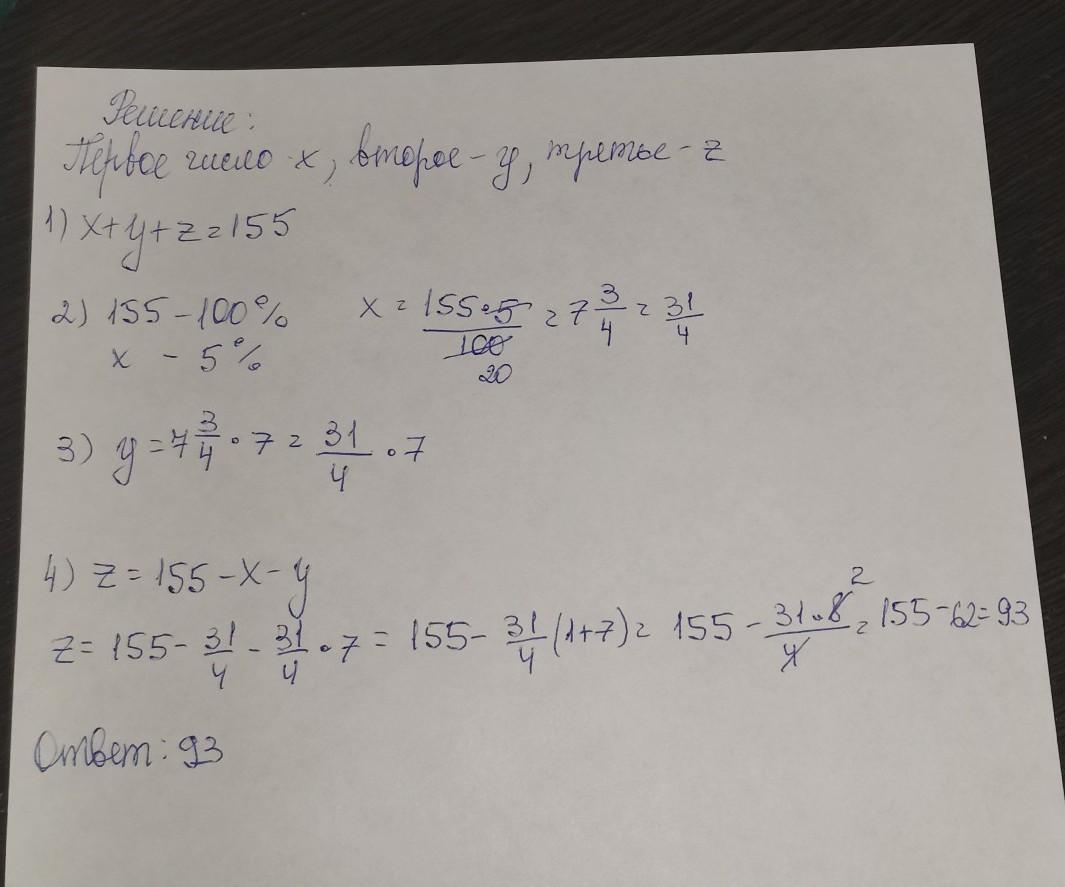 Решение:
Первое число - x, второе - y, третье - z
1) x+y+z=155
2) 155 - 100% x = 155•5/100 = 7 3/4 = 31/4
x - 5% 20
3) y = 7 3/4 • 7 = 31/4 • 7
4) z = 155 - x - y
z = 155 - 31/4 - 31/4 • 7 = 155 - 31/4 (1+7) = 155 - 31•8/4 2 = 155 - 62 = 93
Ответ: 93